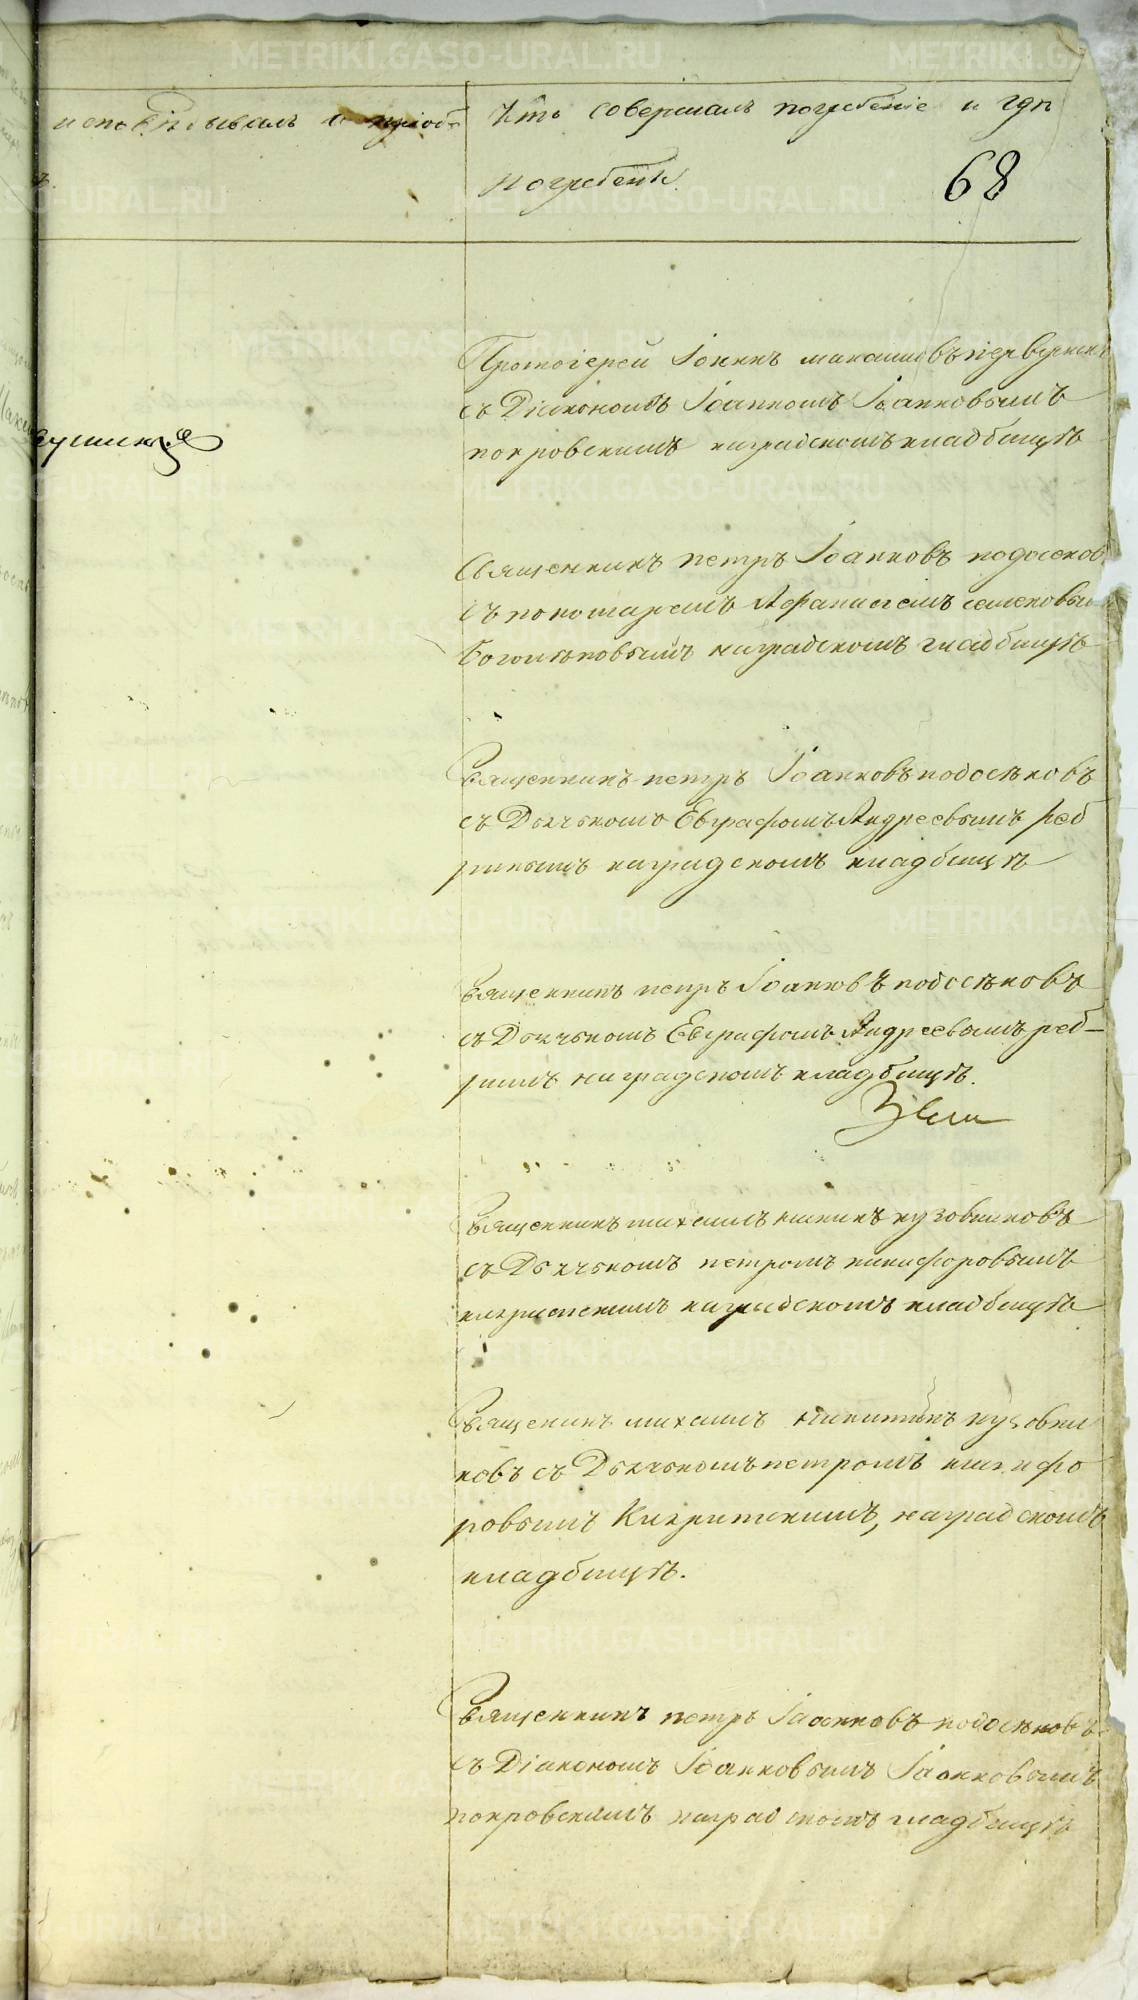 исповѣдывалъ и пріобщ
Кто совершалъ погребеніе и гдѣ
погребены.
68
Протоіерей Іоаннъ максимовъ первушинъ
съ Діякономъ Іоанномъ Іоанновымъ
покровскимъ наградскомъ кладбищѣ
Священникъ петръ Іоанновъ подосеновъ
съ пономаремъ Афанасіемъ семеновы
Боголѣповымъ наградскомъ кладбищѣ
Священникъ петръ Іоанновъ подосѣновъ
съ Дьячькомъ Евграфомъ Андреевымъ реб
ринымъ наградскомъ кладбищѣ
Священникъ петръ Іоанновъ подосѣновъ
съ Дьячькомъ Евграфомъ Андреевымъ реб-
римъ наградскомъ кладбищѣ.
Священникъ михаилъ кузовниковъ
съ Дьячькомъ петромъ никифоровымъ
наградскомъ кладбищѣ
Священикъ михаилъ никитинъ кузовни
ковъ съ Дьячькомъ петромъ никифо
ровымъ Кикритскимъ, наградскомъ
кладбищѣ.
Священникъ петръ Іаонновъ подосѣновъ
съ Діакономъ Іоанновымъ Іаонновымъ
покровскимъ наградскомъ кладбищѣ